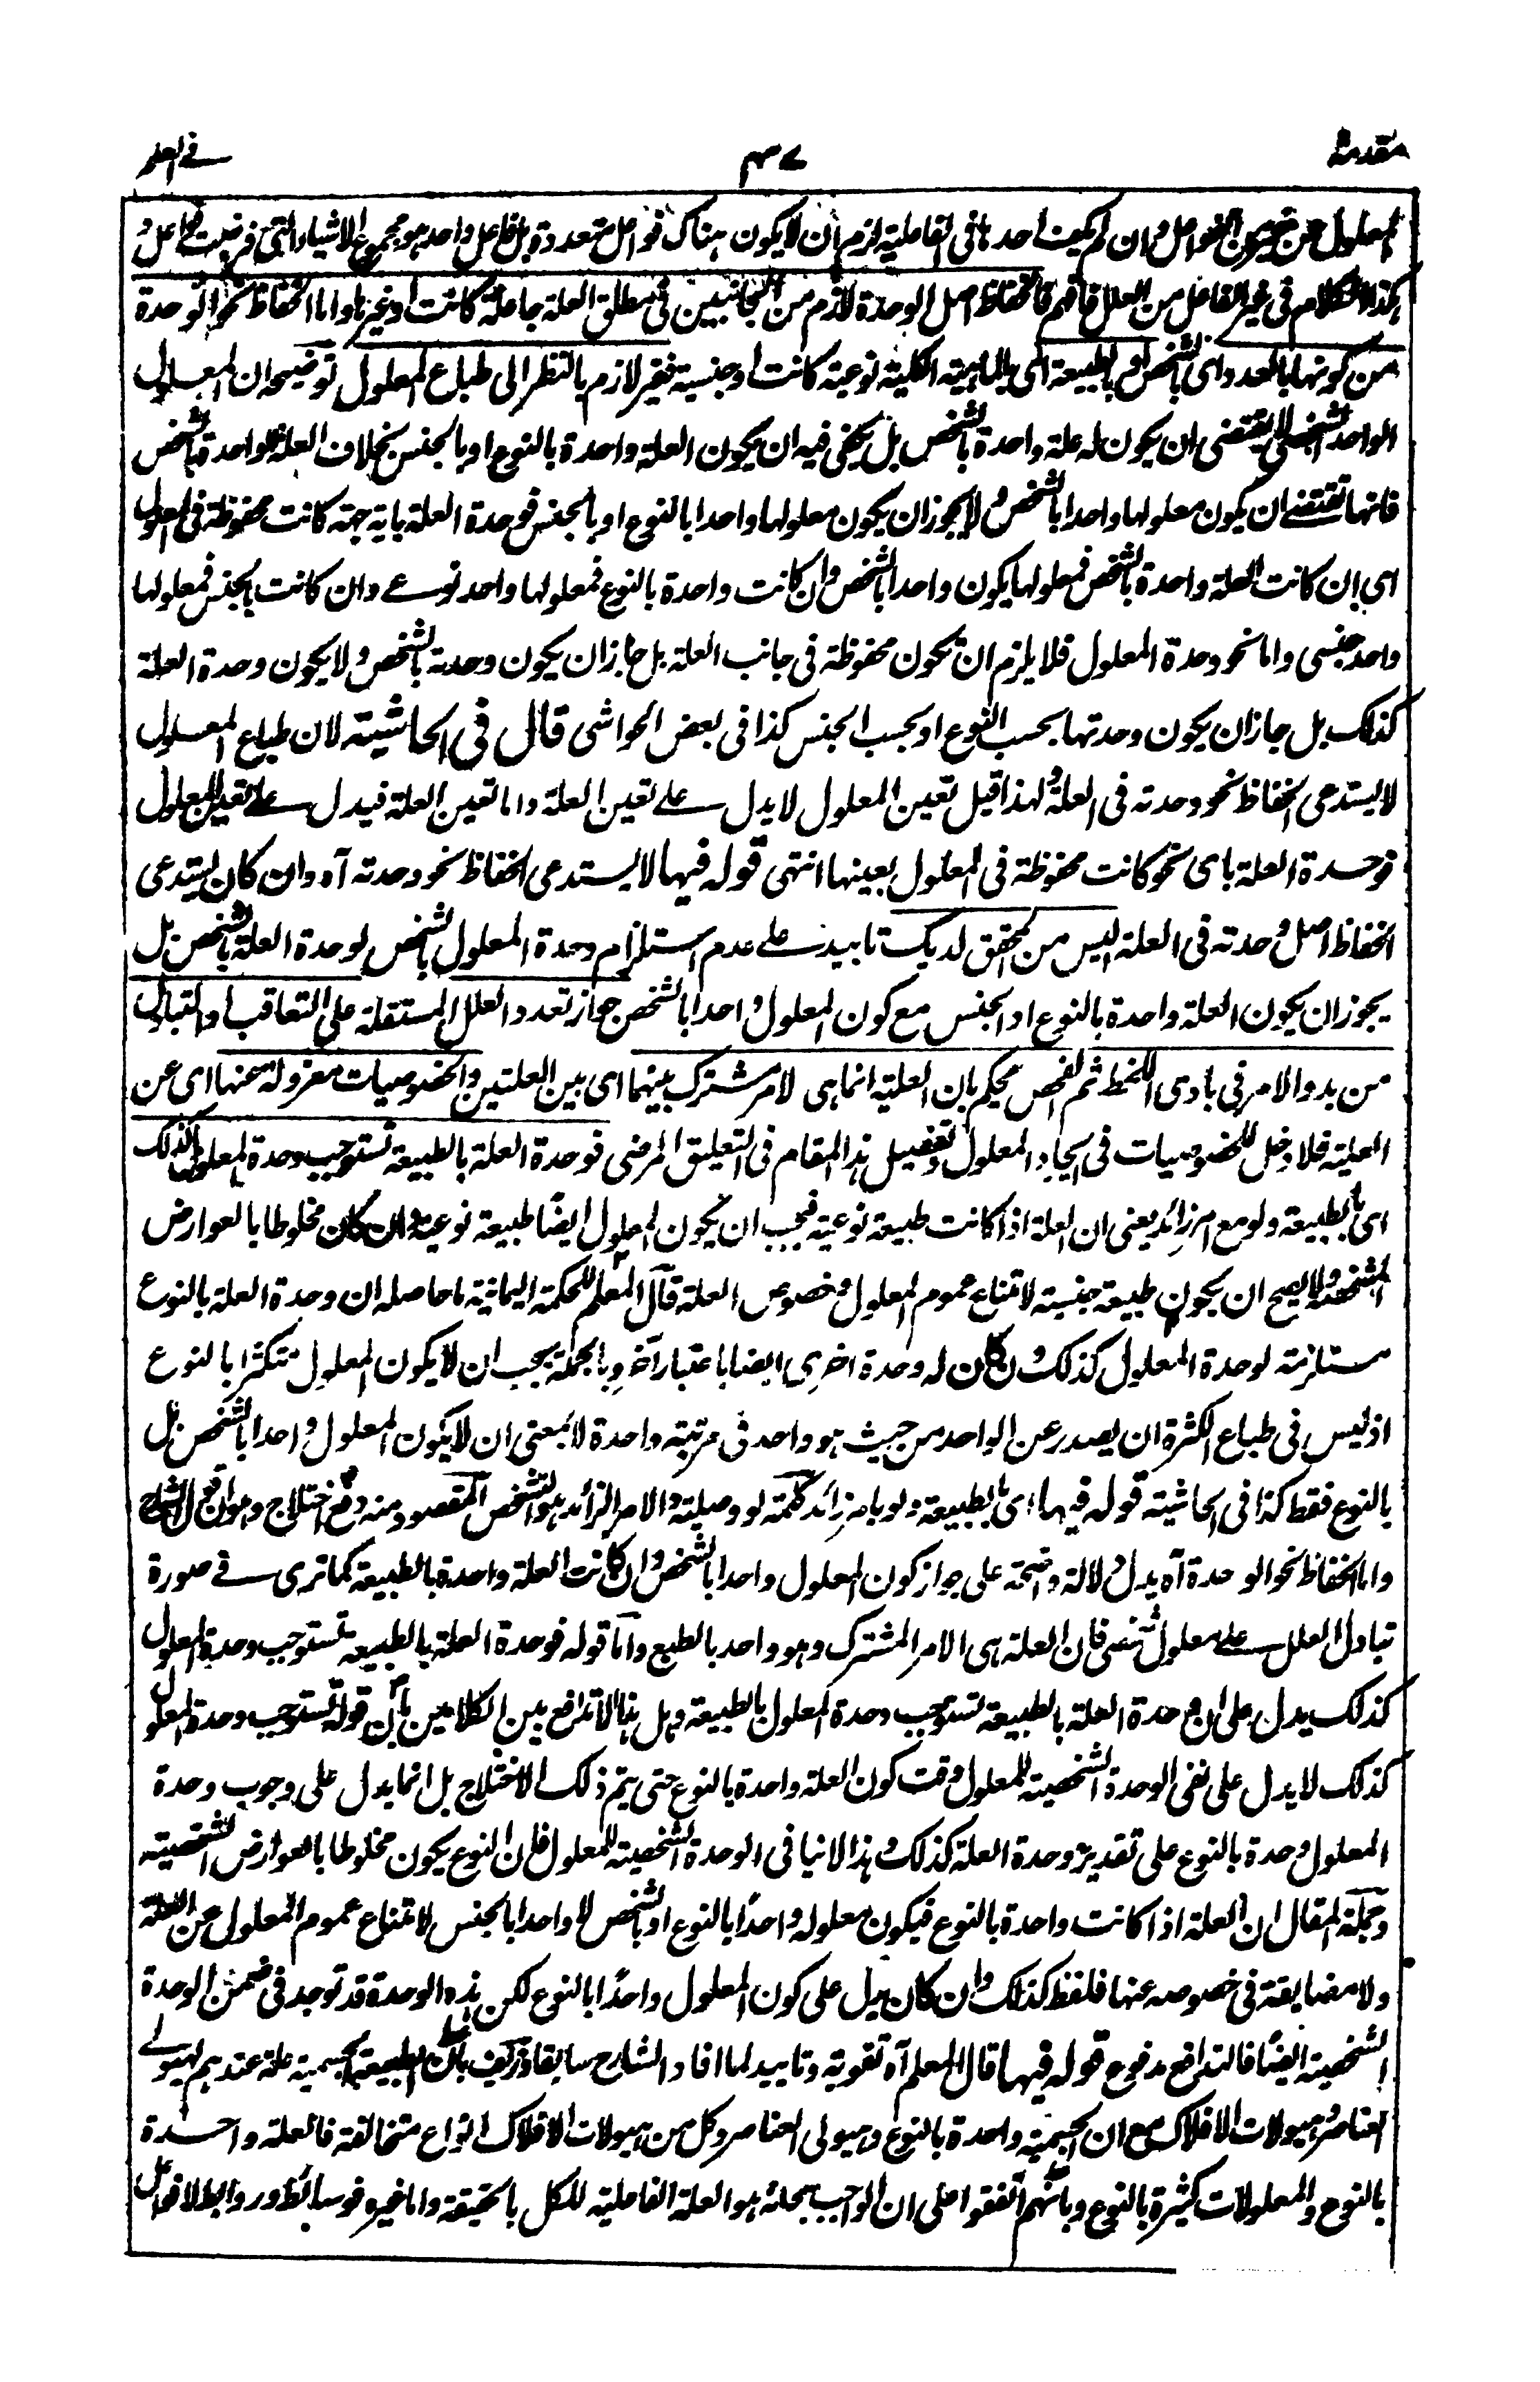 مقدمة
في العلم
المعلول عن الفواعل وان لم يكف احدها في الفاعلية لزم ان لا يكون هناك فواعل متعددة بل فاعل واحد هو مجموع الاشياء التي فرضت فواعل و
هكذا الكلام في غير الفاعل من العلل فافهم فانحفاظ اصل الوحدة لازم من الجانبين في مطلق العلة جاعلة كانت او غيرها واما انحفاظ نحو الوحدة
من كونها بالعدد اي بالشخص او بالطبيعة اي بالماهية الكلية نوعية كانت او جنسية فغير لازم بالنظر الى طباع المعلول توضيحه ان المعلول
الواحد الشخصي لا يقتضي ان يكون له علة واحدة بالشخص بل يكفي فيه ان يكون العلة واحدة بالنوع او بالجنس بخلاف العلة الواحدة بالشخص
فانها تقتضي ان يكون معلولها واحدا بالشخص ولا يجوز ان يكون معلولها واحدا بالنوع او بالجنس فوحدة العلة باية جهة كانت محفوظة في المعلول
اي ان كانت العلة واحدة بالشخص فمعلولها يكون واحدا بالشخص وان كانت واحدة بالنوع فمعلولها واحد نوعي وان كانت بالجنس فمعلولها
واحد جنسي واما نحو وحدة المعلول فلا يلزم ان تكون محفوظة في جانب العلة بل جاز ان يكون وحدته بالشخص ولا يكون وحدة العلة
كذلك بل جاز ان يكون وحدتها بحسب النوع او بحسب الجنس كذا في بعض الحواشي قال في الحاشية لان طباع المعلول
لا يستدعي انحفاظ نحو وحدته في العلة ولهذا قيل تعين المعلول لا يدل على تعين العلة واما تعين العلة فيدل على تعين المعلول
فوحدة العلة باي نحو كانت محفوظة في المعلول بعينها انتهى قوله فيها لا يستدعي انحفاظ نحو وحدته آه وان كان يستدعي
انحفاظ اصل وحدته في العلة اليس من المحقق لديك تاييد على عدم استلزام وحدة المعلول بالشخص لوحدة العلة بالشخص بل
يجوز ان يكون العلة واحدة بالنوع او الجنس مع كون المعلول واحدا بالشخص جواز تعدد العلل المستقلة على التعاقب او التبادل
من بدو الامر في بادى اللحظ ثم الفحص يحكم بان العلية انما هي لامر مشترك بينهما اي بين العلتين والخصوصيات معزولة عنها اي عن
العلية فلا دخل للخصوصيات في ايجاد المعلول وتفصيل هذا المقام في التعليق المرضي فوحدة العلة بالطبيعة تستوجب وحدة المعلول كذلك
اي بالطبيعة ولو مع امر زائد يعني ان العلة اذا كانت طبيعة نوعية فيجب ان يكون المعلول ايضا طبيعة نوعية وان كان مخلوطا بالعوارض
المشخصة ولا يصح ان يكون طبيعة جنسية لامتناع عموم المعلول وخصوص العلة قال المعلم للحكمة اليمانية ما حاصله ان وحدة العلة بالنوع
مستلزمة لوحدة المعلول كذلك وان كان له وحدة اخرى ايضا باعتبار آخر وبالجملة يجب ان لا يكون المعلول متكثرا بالنوع
اذ ليس في طباع الكثرة ان يصدر عن الواحد من حيث هو واحد في مرتبة واحدة لا بمعنى ان لا يكون المعلول واحدا بالشخص بل
بالنوع فقط كذا في الحاشية قوله فيها اي بالطبيعة ولو بامر زائد كلمة لو وصلية والامر الزائد هو التشخص المقصود منه دفع اختلاج وهو ان قول الشارح
واما انحفاظ نحو الوحدة آه يدل دلالة واضحة على جواز كون المعلول واحدا بالشخص وان كانت العلة واحدة بالطبيعة كما ترى في صورة
تبادل العلل على معلول شخصي فان العلة هي الامر المشترك وهو واحد بالطبع واما قوله فوحدة العلة بالطبيعة تستوجب وحدة المعلول
كذلك يدل على ان وحدة العلة بالطبيعة تستوجب وحدة المعلول بالطبيعة وهل هذا الا تدافع بين الكلامين بان قوله تستوجب وحدة المعلول
كذلك لا يدل على نفي الوحدة الشخصية للمعلول وقت كون العلة واحدة بالنوع حتى يتم ذلك الاختلاج بل انما يدل على وجوب وحدة
المعلول وحدة بالنوع على تقدير وحدة العلة كذلك وهذا لا ينافي الوحدة الشخصية للمعلول فان النوع يكون مخلوطا بالعوارض الشخصية
وجملة المقال ان العلة اذا كانت واحدة بالنوع فيكون معلوله واحدا بالنوع او بالشخص لا واحدا بالجنس لامتناع عموم المعلول عن العلة
ولا مضايقة في خصوصه عنها فلفظ كذلك وان كان يدل على كون المعلول واحدا بالنوع لكن هذه الوحدة قد توجد في ضمن الوحدة
الشخصية ايضا فالتدافع مدفوع قوله فيها قال المعلم آه تقوية وتاييد لما افاد الشارح سابقا وزيف بان الطبيعة الجسمية علة عندهم لهيولى
العناصر وهيولات الافلاك مع ان الجسمية واحدة بالنوع وهيولى العناصر وكل من هيولات الافلاك انواع متخالفة فالعلة واحدة
بالنوع والمعلولات كثيرة بالنوع وبانهم اتفقوا على ان الواجب سبحانه هو العلة الفاعلية للكل بالحقيقة واما غيره فوسائط وروابط لا فواعل